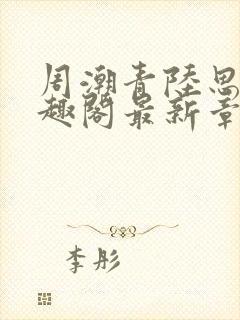 周潮青陸思
趣閣最新章
李彤